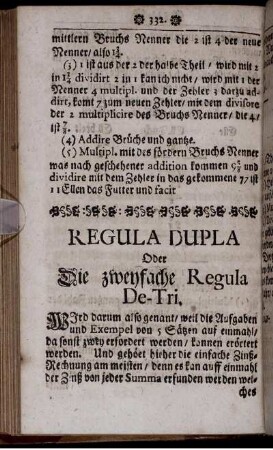 332.
mittlern Bruchs Nenner die 2 ist 4 der neue
Nenner/ also 1¾.
(3) 1 ist aus der 2 der halbe Theil / wird mit 2
in 1¾ dividirt 2 in 1 kan ich nicht / wird mit 1 der
Nenner 4 multipl. und der Zehler 3 darzu ad-
dirt, komt 7 zum neuen Zehler/ mit dem divisore
der 2 multiplicire des Bruchs Nenner/ die 4/
ist ⅞.
(4) Addire Brüche und gantze.
(5) Multipl. mit des födern Bruchs Nenner
was nach geschehener addition kommen und
dividire mit dem Zehler in das gekommene 77 ist
11 Ellen das Futter und facit
REGULA DUPLA
Oder
Die zweyfache Regula
De-Tri,
Wird darum also genant/ weil die Aufgaben
und Exempel von 5 Sätzen auf einmahl/
da sonst zwey erfordert werden/ können erörtert
werden. Und gehöet hieher die einfache Zinß-
Rechnung am meisten/ denn es kan auff einmahl
der Zinß von jeder Summa erfunden werden wel-
ches